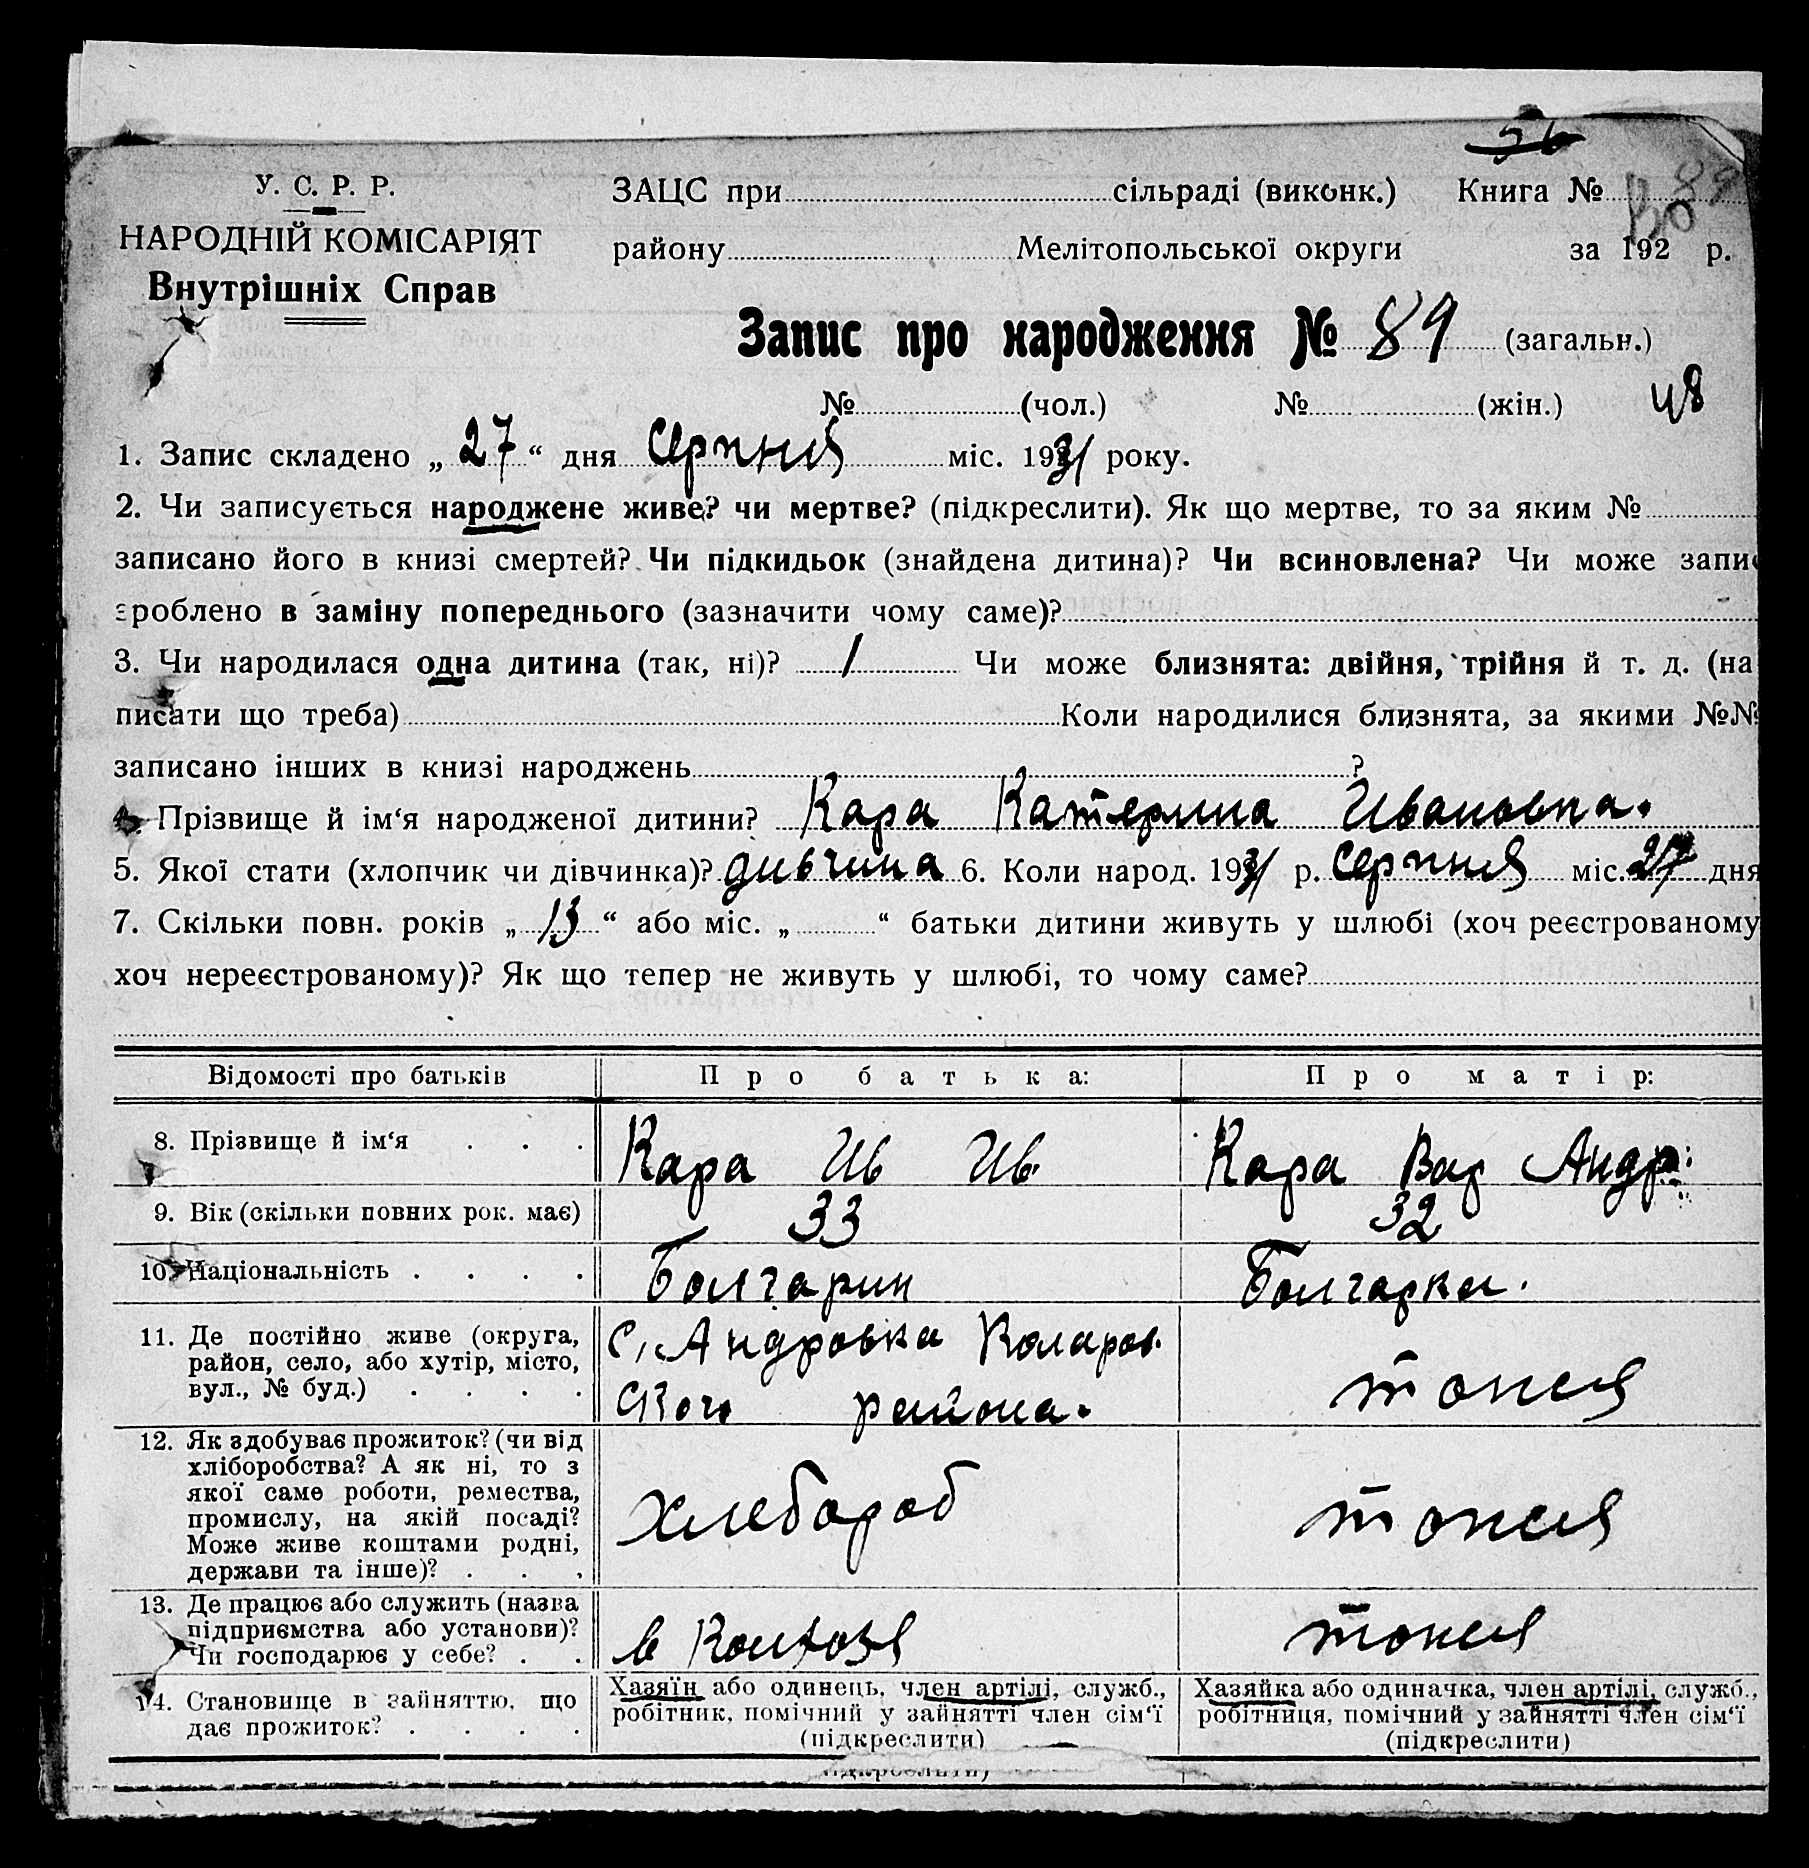 56
У. С. Р. Р.
НАРОДНІЙ КОМІСАРІЯТ
Внутрішніх Справ
ЗАЦС при сільраді (виконк.) Книга № 89
району Мелітопольської округи за 192 р.
Запис про народження № 89 (загальн.)
№ (чол.) № (жін.) 48
1. Запис складено „ 27 “ дня Серпня міс. 1931 року.
2. Чи записується народжене живе? чи мертве? (підкреслити). Як що мертве, то за яким №
записано його в книзі смертей? Чи підкидьок (знайдена дитина)? Чи всиновлена? Чи може запис
зроблено в заміну попереднього (зазначити чому саме)?
3. Чи народилася одна дитина (так, ні)? 1 Чи може близнята: двійня, трійня й т. д. (на
писати що треба) Коли народилися близнята, за якими №№
записано інших в книзі народжень ?
4. Прізвище й ім‘я народженої дитини? Кара Катерина Ивановна.
5. Якої стати (хлопчик чи дівчинка)? дивчина 6. Коли народ. 1931 р. Серпня міс. 27 дня
7. Скільки повн. років „ 13 “ або міс. „ “ батьки дитини живуть у шлюбі (хоч реєстрованому
хоч нереєстрованому)? Як що тепер не живуть у шлюбі, то чому саме?
Відомості про батьків Про батька: Про матір:
8. Прізвище й ім‘я . . . Кара Ив Ив. Кара Вар Андр:
9. Вік (скільки повних рок. має) 33 32
10. Національність . . . . Болгарин Болгарка.
11. Де постійно живе (округа,
район, село, або хутір, місто,
вул., № буд.) . . . .
С. Андровка Коларов.
ского района.
тоже
12. Як здобуває прожиток? (чи від
хліборобства? А як ні, то з
якої саме роботи, ремества,
промислу, на якій посаді?
Може живе коштами родні,
держави та інше)? . . .
Хлебороб
тоже
13. Де працює або служить (назва
підприємства або установи)?
Чи господарює у себе? . .
в Колхозя
тоже
14. Становище в зайняттю, що
дає прожиток? . . . .
Хазяїн або одинець, член артілі, служб.,
робітник, помічний у зайнятті член сім‘ї
(підкреслити)
Хазяйка або одиначка, член артілі, служб.,
робітниця, помічний у зайнятті член сім‘ї
(підкреслити)